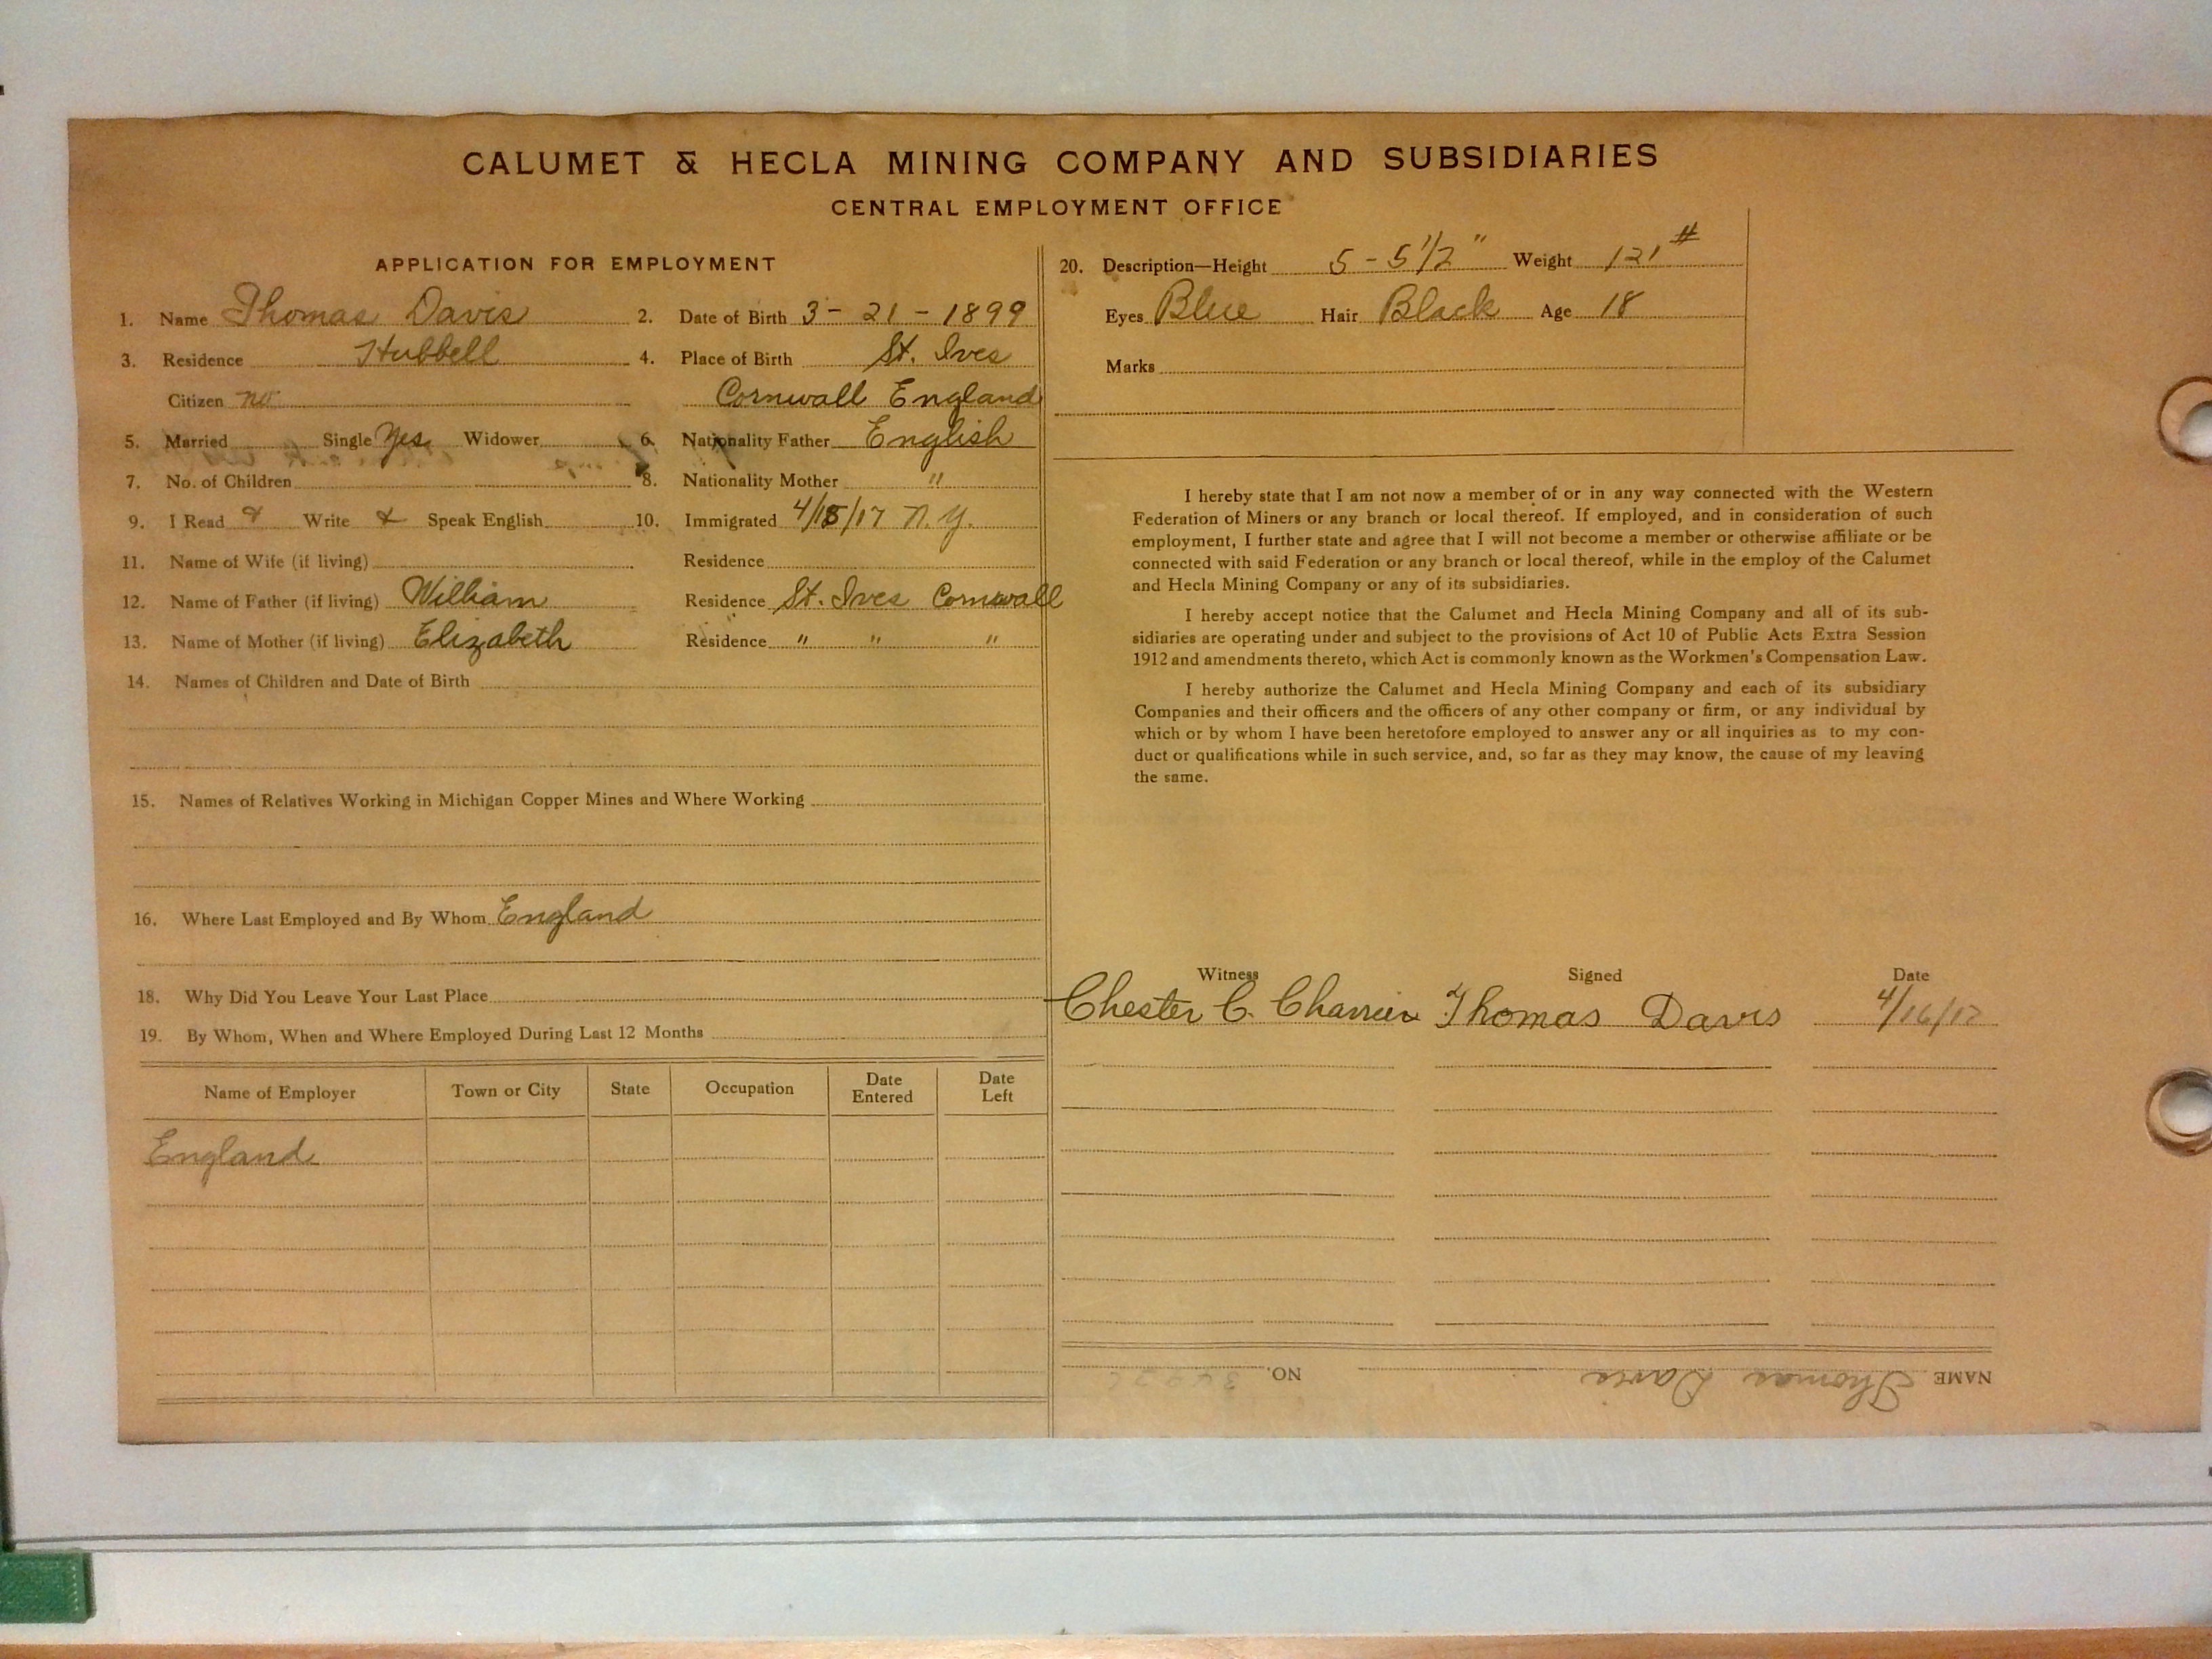 CALUMET & HECLA MINING COMPANY AND SUBSIDIARIES
CENTRAL EMPLOYMENT OFFICE
APPLICATION FOR EMPLOYMENT
1. Name Thomas Davis 2. Date of Birth 3 - 21 - 1899
3. Residence Hubbell 4. Place of Birth St. Ives
Citizen no Cornwall England
5. Married Single Yes Widower 6. Nationality Father English
7. No. of Children 8. Nationality Mother "
9. I Read & Write & Speak English 10. Immigrated 4/15/17 N.Y.
11. Name of Wife (if living) Residence
12. Name of Father (if living) William Residence St. Ives Cornwall
13. Name of Mother (if living) Elizabeth Residence " " "
14. Names of Children and Date of Birth
15. Names of Relatives Working in Michigan Copper Mines and Where Working
16. Where Last Employed and By Whom England
18. Why Did You Leave Your Last Place
19. By Whom, When and Where Employed During Last 12 Months
Name of Employer Town or City State Occupation Date Entered Date Left
England
20. Description—Height 5 - 5 1/2 " Weight 121 #
Eyes Blue Hair Black Age 18
Marks
I hereby state that I am not now a member of or in any way connected with the Western
Federation of Miners or any branch or local thereof. If employed, and in consideration of such
employment, I further state and agree that I will not become a member or otherwise affiliate or be
connected with said Federation or any branch or local thereof, while in the employ of the Calumet
and Hecla Mining Company or any of its subsidiaries.
I hereby accept notice that the Calumet and Hecla Mining Company and all of its sub-
sidiaries are operating under and subject to the provisions of Act 10 of Public Acts Extra Session
1912 and amendments thereto, which Act is commonly known as the Workmen's Compensation Law.
I hereby authorize the Calumet and Hecla Mining Company and each of its subsidiary
Companies and their officers and the officers of any other company or firm, or any individual by
which or by whom I have been heretofore employed to answer any or all inquiries as to my con-
duct or qualifications while in such service, and, so far as they may know, the cause of my leaving
the same.
Witness Signed Date
Chester C. Thomas Davis 4/16/17
NAME Thomas Davis NO.